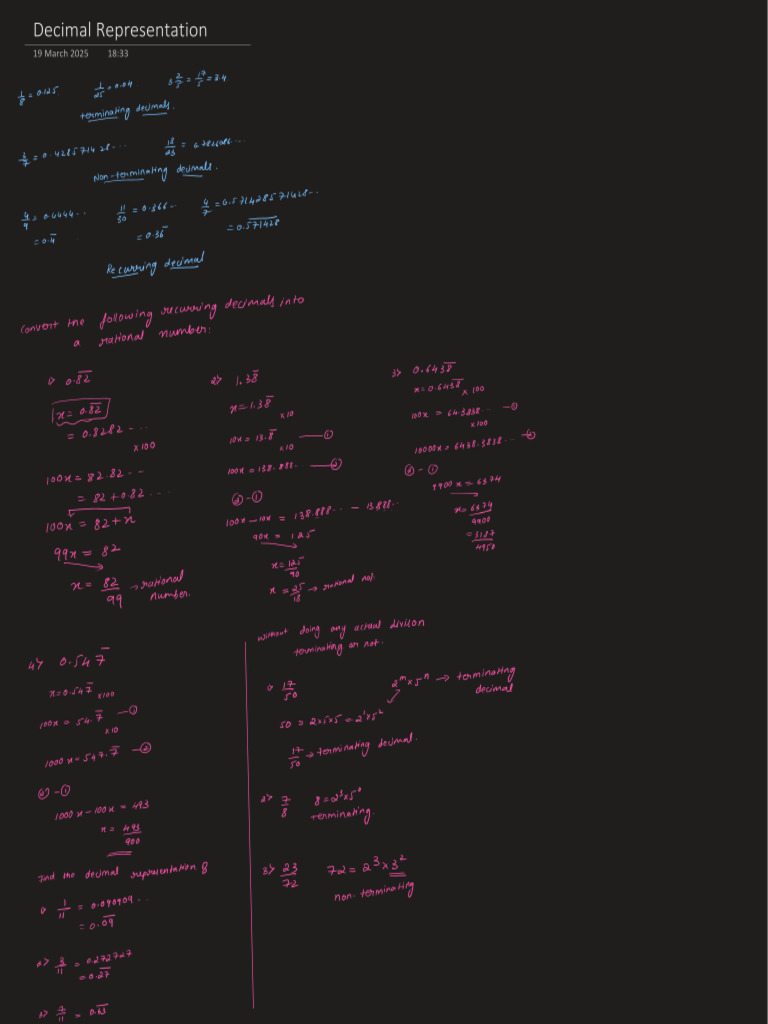 Decimal Representation
19 March 2025 18:33
1/8 = 0.125 1/25 = 0.04 3 2/5 = 17/5 = 3.4
terminating decimals.
3/7 = 0.428571428... 18/23 =
Non-terminating decimals.
4/9 = 0.4444.. 11/30 = 0.366.. 4/7 = 0.571428571428..
= 0.4̅ = 0.36̅ = 0.5̅7̅1̅4̅2̅8̅
Recurring decimal
Convert the following recurring decimals into
a rational number:
1) 0.8̅2̅
x = 0.8̅2̅
= 0.8282 - ..
× 100
100x = 82.82 - -
= 82 + 0.82 ...
100x = 82 + x
99x = 82
x = 82/99 → rational number.
2) 1.38̅
x = 1.38̅
× 10
10x = 13.8̅ — ①
× 10
100x = 138.888.. — ②
② - ①
100x - 10x = 138.888... - 13.888..
90x = 125
x = 125/90
x = 25/18 → rational no.
3) 0.643̅8̅
x = 0.643̅8̅
× 100
100x = 64.3838.. — ①
× 100
10000x = 6438.3838.. — ②
② - ①
9900x = 6374
x = 6374/9900
= 3187/4950
4) 0.547̅
x = 0.547̅ × 100
100x = 54.7̅ — ①
× 10
1000x = 547.7̅ — ②
② - ①
1000x - 100x = 493
x = 493/900
Find the decimal representation of
1) 1/11 = 0.090909...
= 0.0̅9̅
2) 3/11 = 0.272727
= 0.2̅7̅
3) 7/11 = 0.6̅3̅
without doing any actual division
terminating or not.
1) 17/50 2^m × 5^n → terminating
decimal
50 = 2×5×5 = 2^1 × 5^2
17/50 → terminating decimal.
2) 7/8 8 = 2^3 × 5^0
terminating.
3) 23/72 72 = 2^3 × 3^2
non-terminating